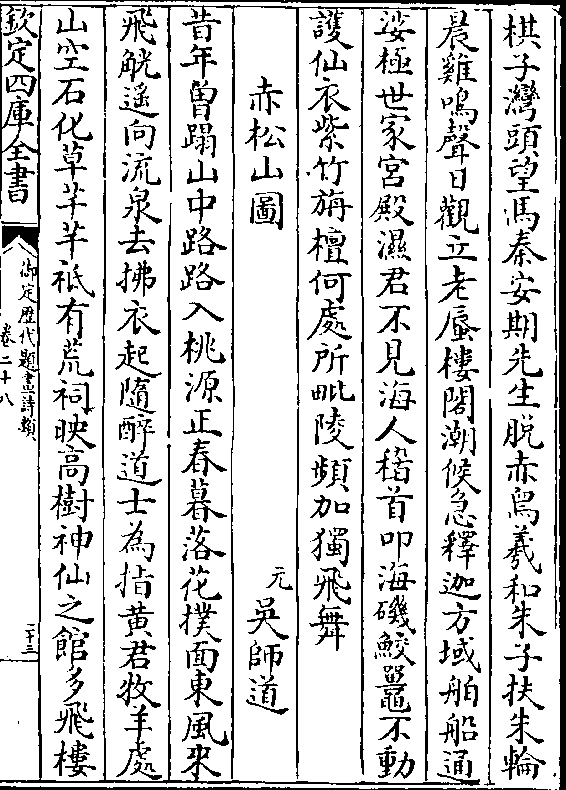 棋子灣頭望馬秦安期先生脱赤舄羲和朱子扶朱輪
晨雞鳴聲日觀立老蜃樓閣潮候急釋迦方域舶船通
娑極世家宮殿濕君不見海人稽首叩海磯鮫鼉不動
䕶仙衣紫竹旃檀何處所毗陵頻加獨飛舞
赤松山圖
元 吳師道
昔年曽蹋山中路路入桃源正春暮落花撲面東風來
飛觥遥向流泉去拂衣起隨醉道士為指黄君牧羊處
山空石化草芊芊祗有荒祠映高樹神仙之館多飛樓
欽定四庫全書
御定歴代題畫詩類
卷二十八
二十三